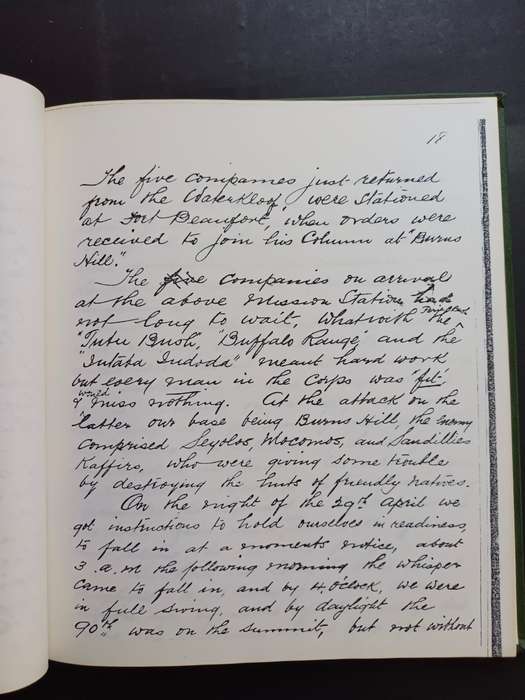 18
The five companies just returned
from the Waterkloof, were Stationed
at Fort Beaufort, when orders were
received to join his Column at "Burns
Hill."
The five companies on arrival
at the above Mission Station had
not long to wait, what with the
"Tutu Bush", "Buffalo Range", and the
"Intata Indoda" meant hard work
but every man in the Corps was "fit",
would
& miss nothing. At the attack on the
latter our base being Burns Hill, the Enemy
comprised Seyolos, Mocomos, and Sandillies
Kaffirs, who were giving some trouble
by destroying the huts of friendly natives.
On the night of the 29th April we
got instructions to hold ourselves in readiness,
to fall in at a moments notice, about
3 a.m. the following morning the whisper
came to fall in, and by 4. O'clock, we were
in full swing, and by daylight the
90th was on the summit, but not without